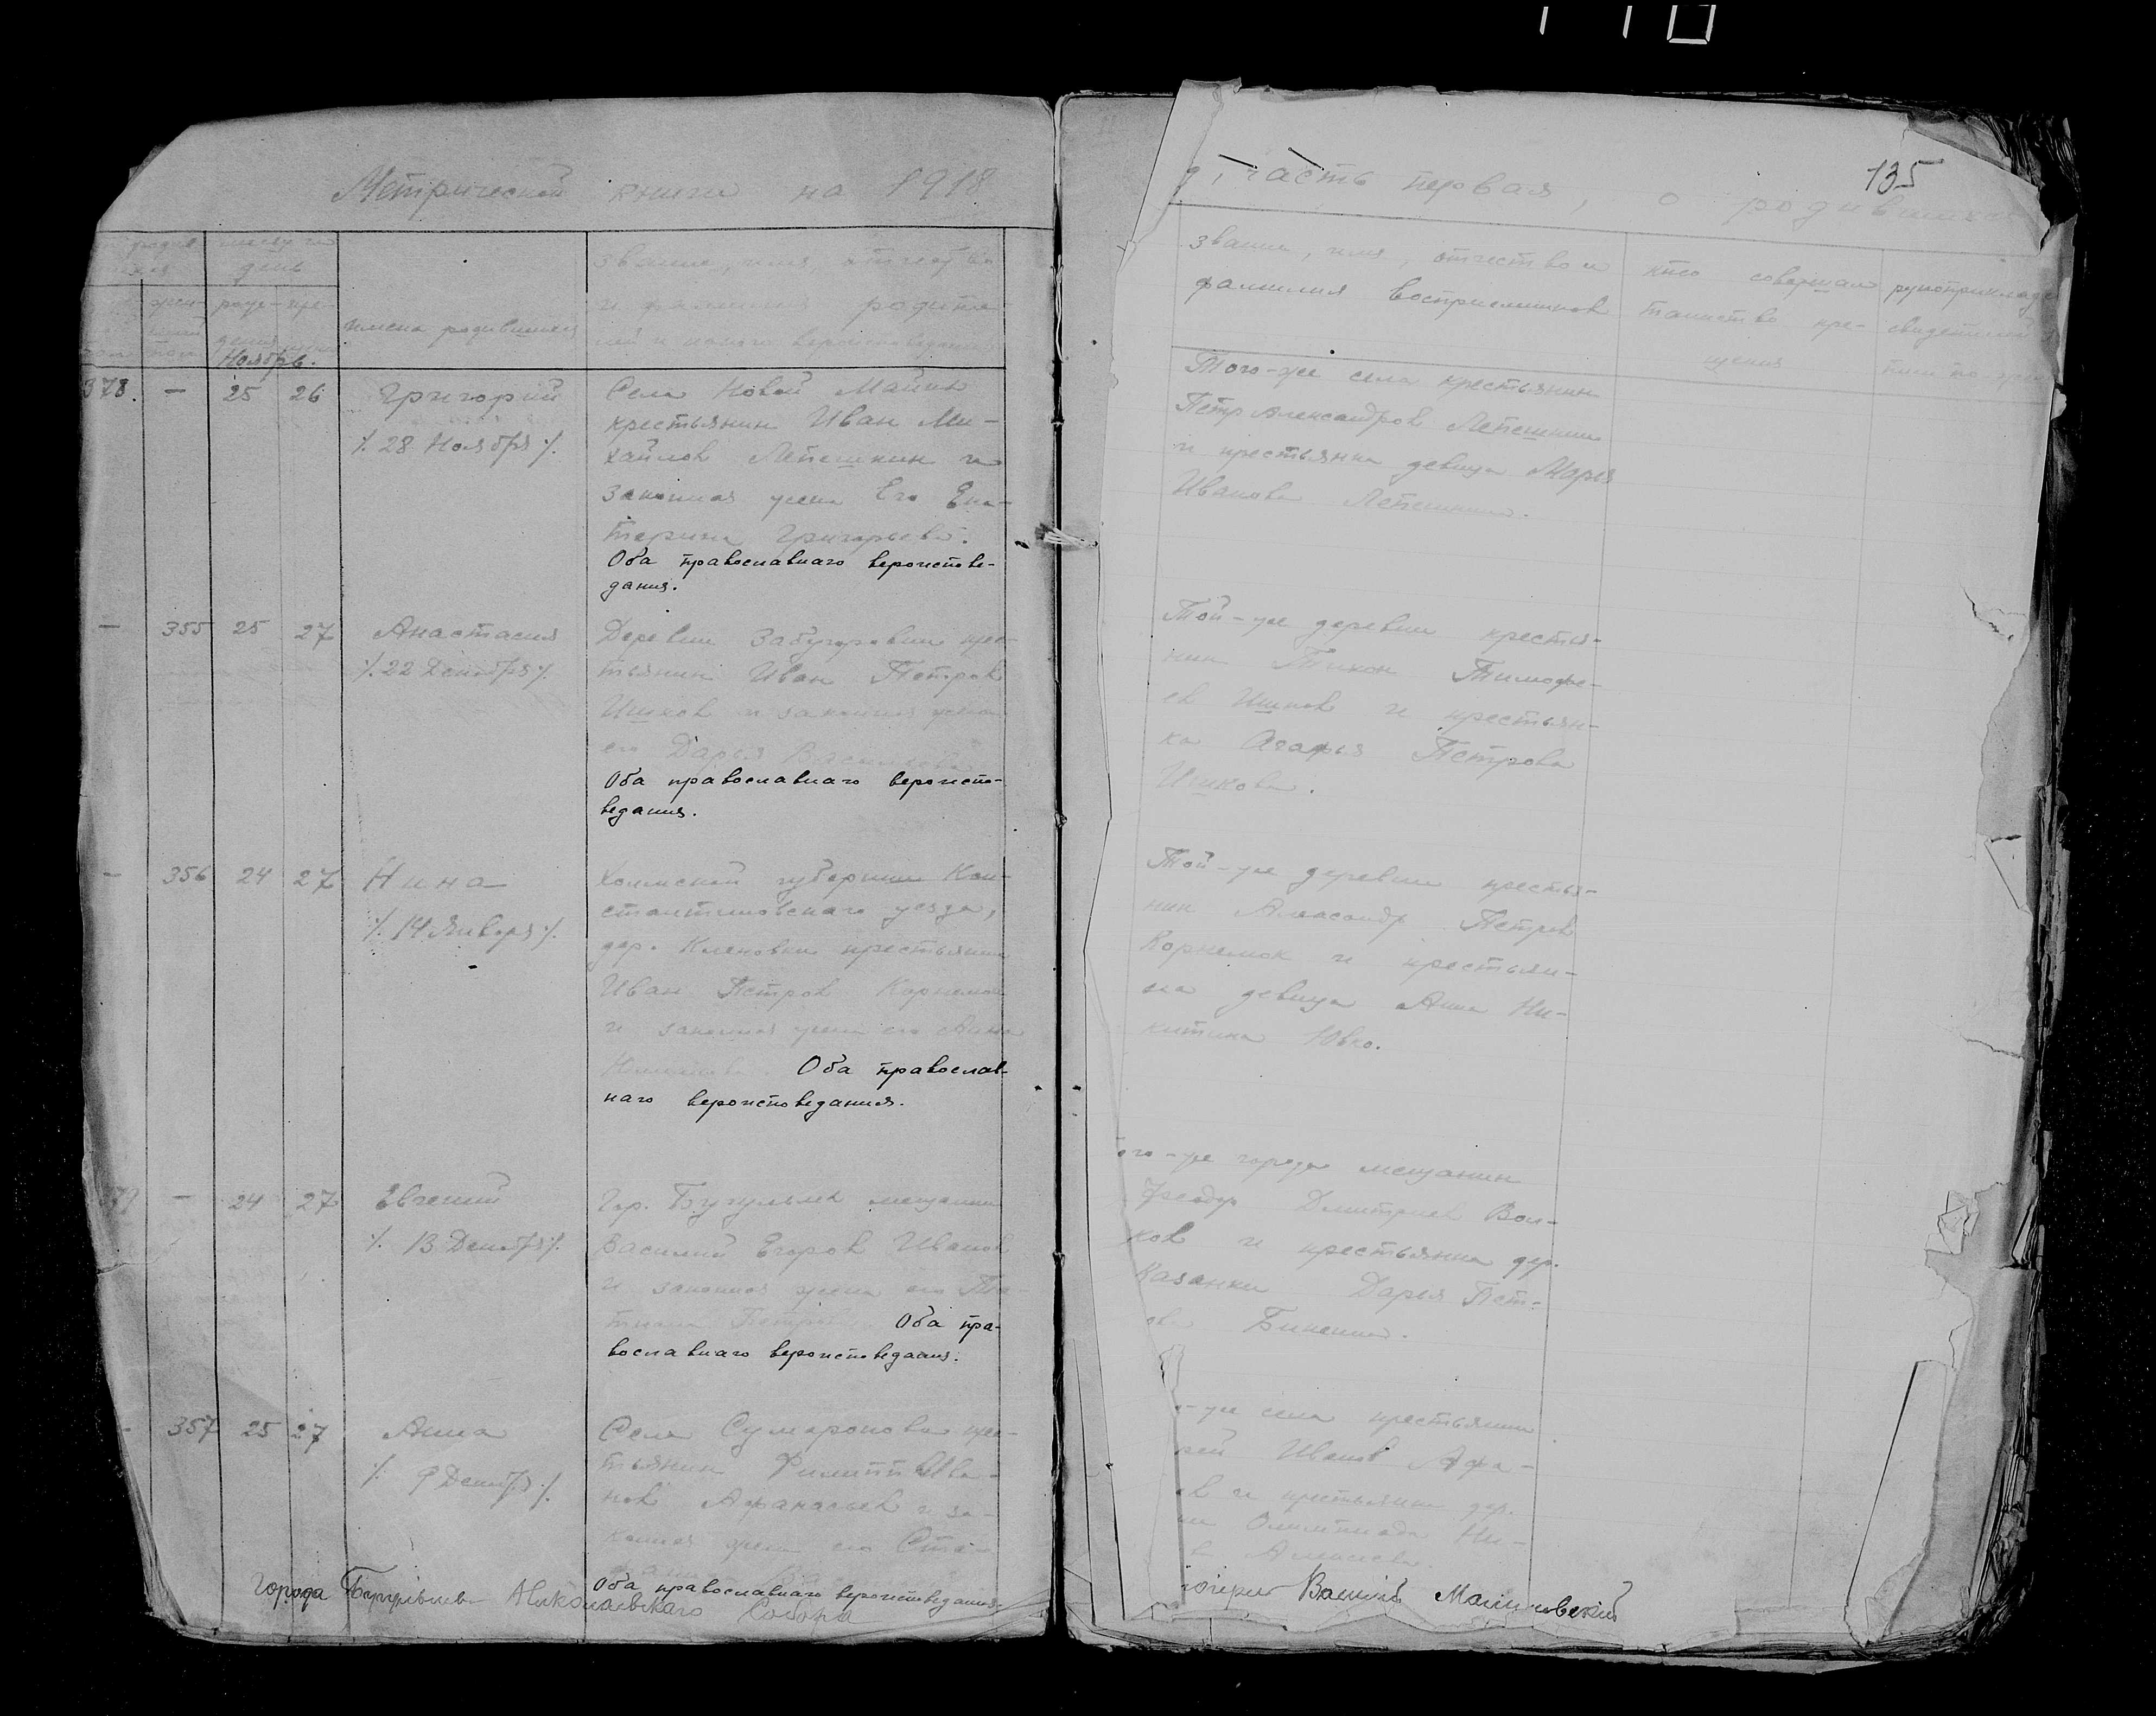 Метрической книги на 1918
часть первая, о родившихся
135
родив
месяц и
день
звание, имя, отчество
и фамилия родите-
лей и какого вероисповедания
имена родившихся
Ноябрь.
звание, имя, отчество и
фамилия восприемников
кто совершал
таинство кре-
щения
рукоприклад
свидетелей
378. — 25 26
Григорий
٪ 28 Ноября ٪
Села Новой Майны
крестьянин Иван Ми-
хайлов Лепешкин и
законная жена Его Ека-
терина Григорьева.
Оба православнаго вероиспове-
дания.
Того-же села крестьянин
Петр Александров Лепешкин
и крестьянка девица Марья
Иванова Лепешкина.
— 355 25 27
Анастасия
٪ 22 Декабря ٪
Деревни Забугоровки крес-
тьянин Иван Петров
Ишков и законная жена
его Дарья Васильева
Оба православнаго вероиспо-
ведания.
Той-же деревни крестья-
нин Тихон Тимофе-
ев Ишков и крестьян-
ка Агафья Петрова
Ишкова.
— 356 24 27
Нина
٪ 14 Января ٪
Холмской губернии Кон-
стантиновскаго уезда,
дер. Кленовки крестьянин
Иван Петров Корнелюк
и законная жена его Анна
Оба православ-
наго вероисповедания.
Той-же деревни крестья-
нин Александр Петров
Корнелюк и крестьян-
ка девица Анна Ни-
китина Ювко.
— 24 27
Евгений
٪ 13 Декабря ٪
Гор. Бугульмы мещанин
Василий Егоров Иванов
и законная жена его Та-
тиана Петрова Оба пра-
вославнаго вероисповедания.
ого-же города мещанин
Феодор Дмитриев Вол-
ков и крестьянка дер.
Казанки Дарья Пет-
ова Бикенина.
- 357 25 27
Анна
٪ 9 Декабря ٪
Села Сумарокова крес-
тьянин Филипп Ива-
нов Афанасьев и за-
конная жена его Сте-
Оба православнаго вероисповедания.
-же села крестьянин
рей Иванов Афа-
ев и крестьянка дер.
ки Олимпиада Ни-
а Алексеева.
Города Бугульмы Николаевскаго Собора
тоиерей Василий Малиновский